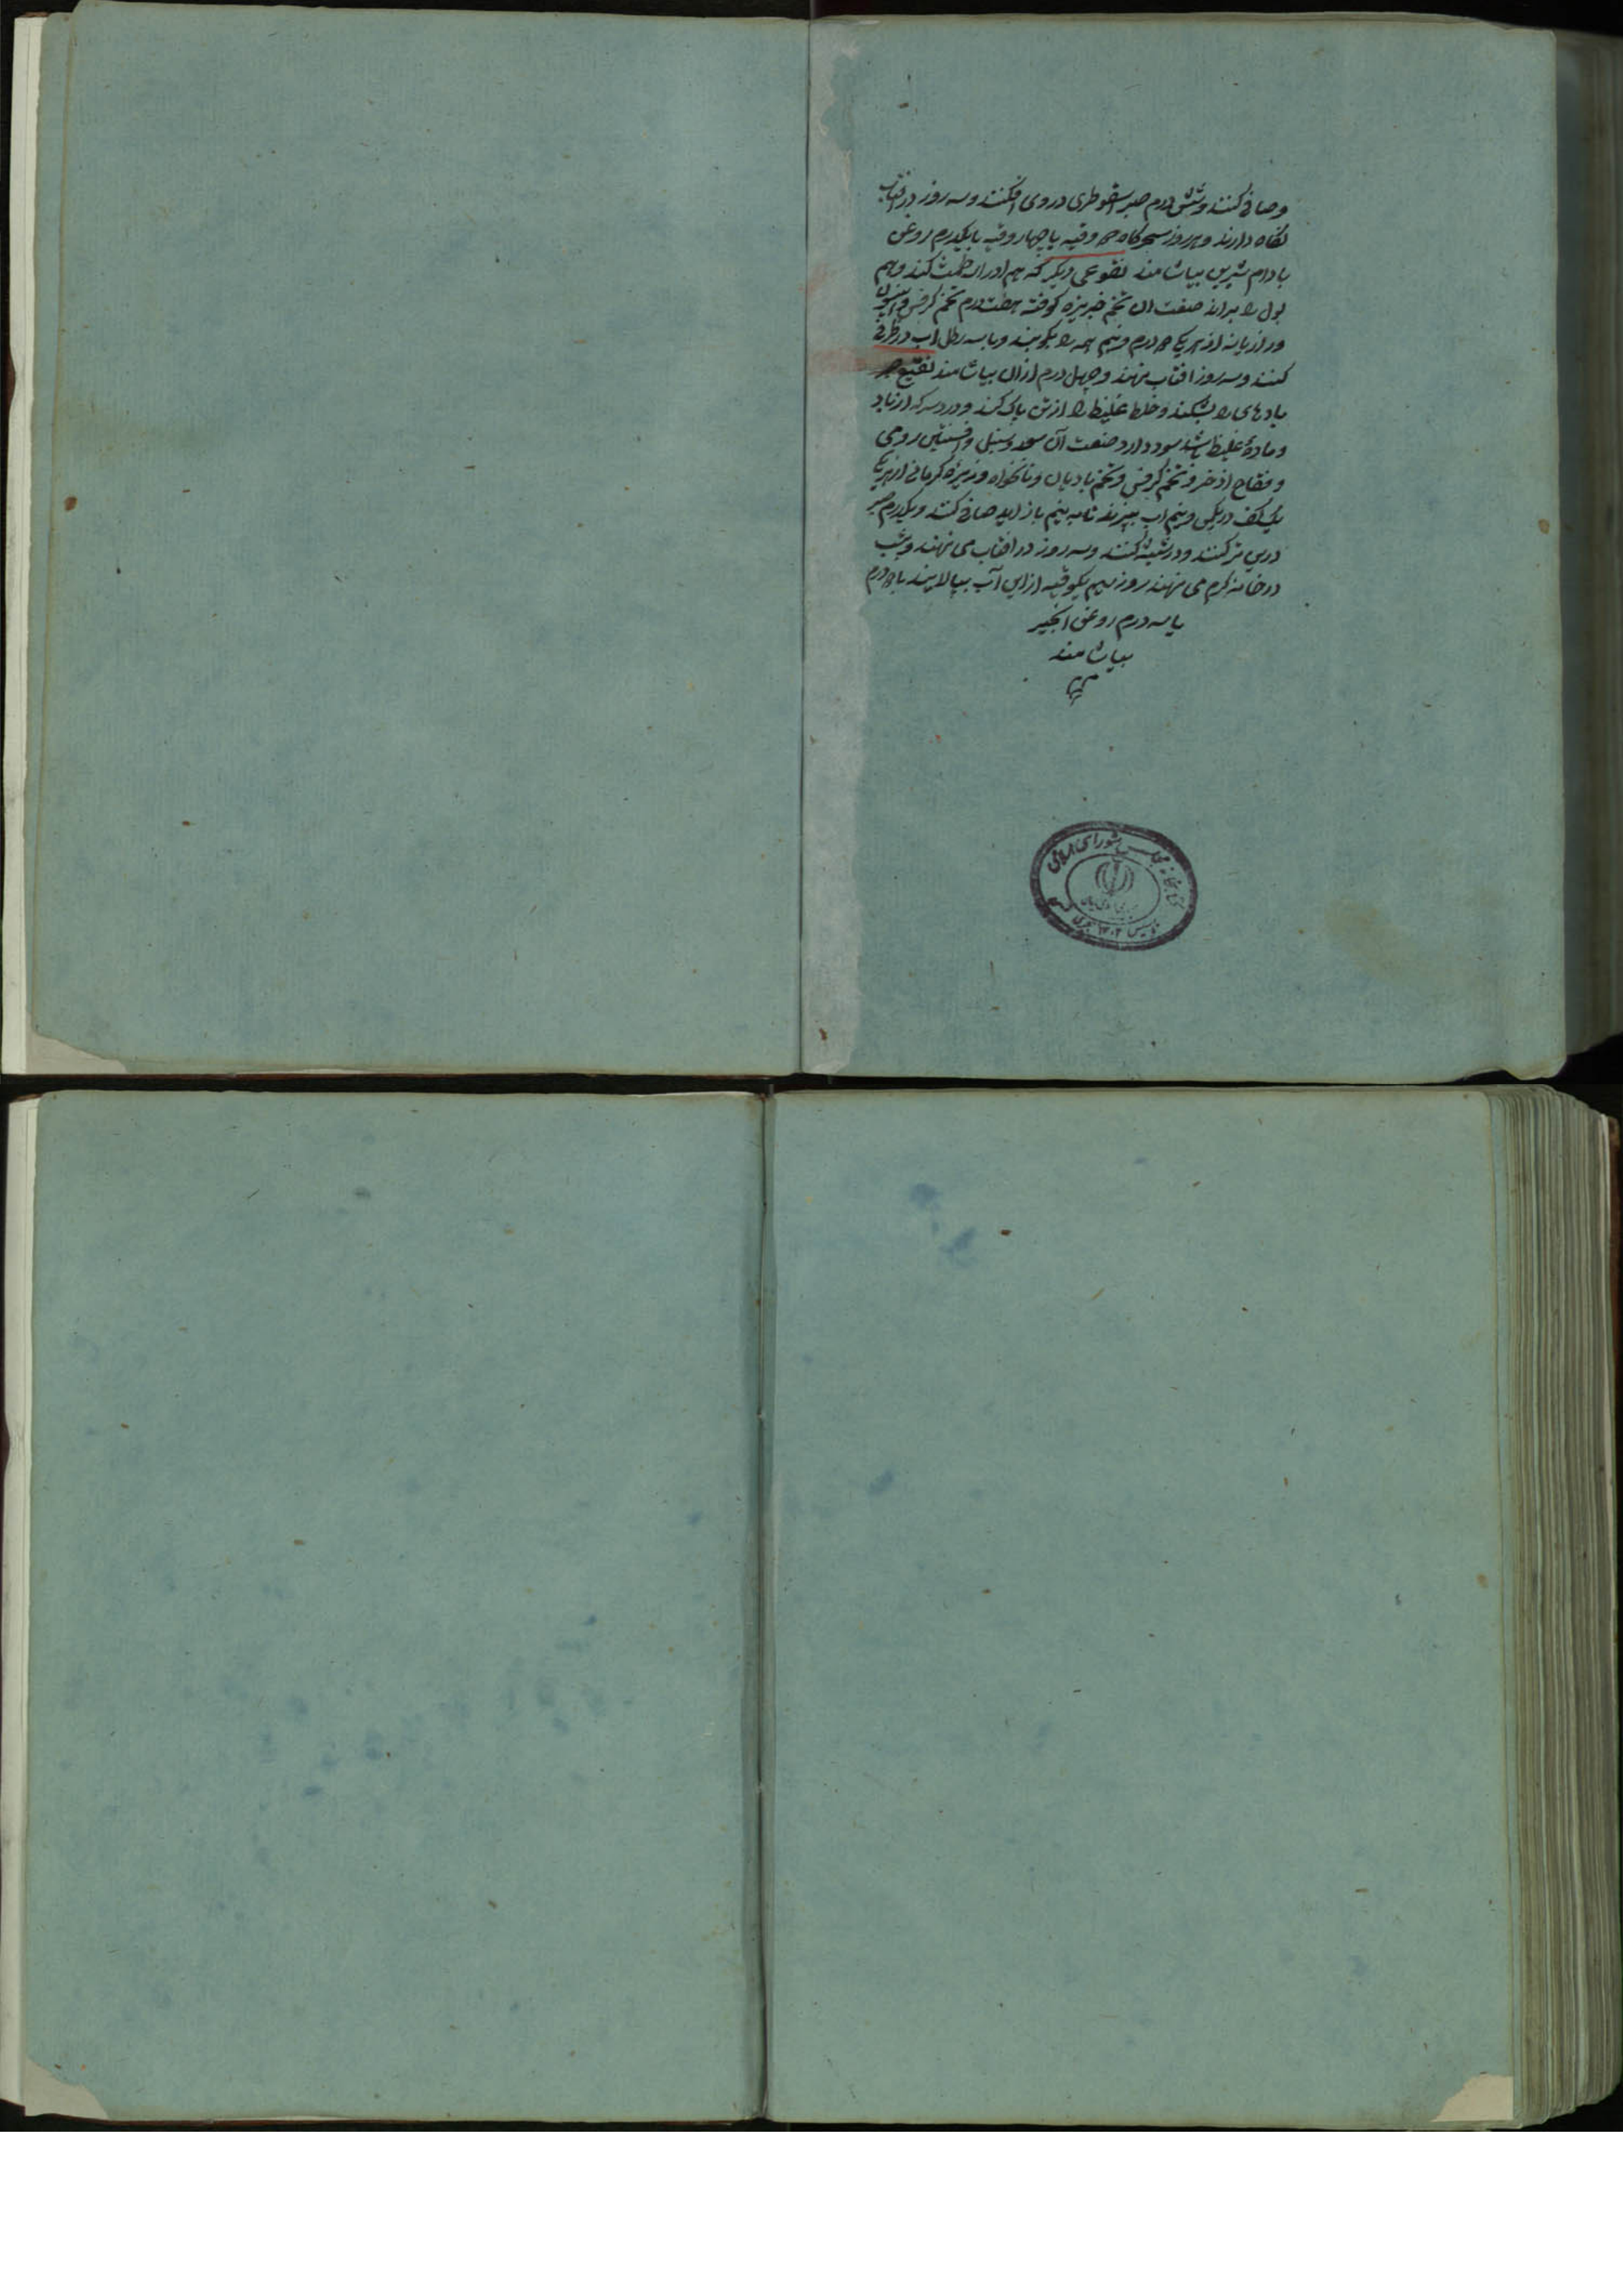 وصافی کنند و شش درم صبر اسقوطری در وی افکنند و سه روز در افتاب
نگاه دارند و هر روز سحرگاه وقیه یا چهار وقیه با یکدرم روغن
بادام شیرین بیاشامند نقوعی دیگر که هم ادرار طمث کند و هم
بول را براند صنعت ان تخم خربزه کوفته هفت درم تخم کرفس و انیسون
و رازیانه از هر یک درم و نیم همه را بکوبند و با سه رطل اب در ظرفی
کنند و سه روز افتاب نهند و چهل درم ازان بیاشامند نقیع صبر
بادهای را بشکند و خلط غلیظ را از تن پاک کند و درد سر که از باد
و ماده غلیظ باشد سود دارد صنعت آن سعد و سنبل و افسنتین رومی
و فقاح اذخر و تخم کرفس و تخم بادیان و نانخواه و زیره کرمانی از هر یک
یک کف در یکمن و نیم اب بپزند تا به نیم باز اید صافی کنند و یکدرم صبر
درین تر کنند و در شیشه کنند و سه روز در افتاب می نهند و شب
در خانه گرم می نهند روز سیم یکوقیه از این آب بپالایند با درم
یا سه درم روغن انجیر
بیاشامند
کتابخانه مجلس شورای اسلامی
تاسیس ۱۳۰۲ هجری